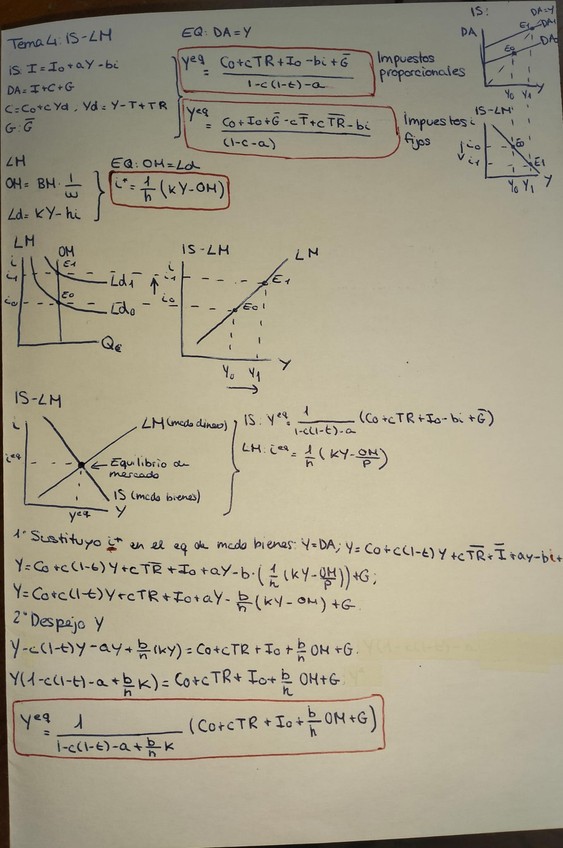 Tema 4: IS-LM
EQ: DA=Y
IS: I = I0 + aY - bi
DA = I + C + G
C = Co + cYd, Yd = Y - T + TR
G: G̅
Yeq = Co + cTR + Io - bi + G̅ / 1-c(1-t)-a
Impuestos proporcionales
Yeq = Co + Io + G̅ - cT̅ + cT̅R̅ - bi / (1-c-a)
Impuestos fijos
IS:
DA
DA=Y
DA1
DA0
E1
E0
Y0 Y1 Y
IS-LM
i
i0
i1
E0
E1
Y0 Y1 Y
LM
EQ: OM = Ld
OM = BM · 1/w
Ld = KY - hi
i* = 1/h (KY - OM)
LM
i
OM
i1
E1
Ld1
i0
E0
Ld0
Q€
IS-LM
i
LM
i1
E1
i0
E0
Y0 Y1
Y
IS-LM
i
LM (mcdo dinero)
ieq
Equilibrio de mercado
IS (mcdo bienes)
Yeq Y
IS: Yeq = 1 / 1-c(1-t)-a (Co + cTR + Io - bi + G̅)
LM: ieq = 1/h (KY - OM/P)
1º Sustituyo i* en el eq de mcdo bienes: Y=DA; Y = Co + c(1-t)Y + cT̅R̅ + I̅ + aY - bi +
Y = Co + c(1-t)Y + cT̅R̅ + Io + aY - b·(1/h (KY - OM/P)) + G;
Y = Co + c(1-t)Y + cTR + Io + aY - b/h (KY - OM) + G.
2º Despejo Y
Y - c(1-t)Y - aY + b/h (KY) = Co + cTR + Io + b/h OM + G.
Y(1 - c(1-t) - a + b/h K) = Co + cTR + Io + b/h OM + G
Yeq = 1 / 1-c(1-t)-a+b/h K (Co + cTR + Io + b/h OM + G)